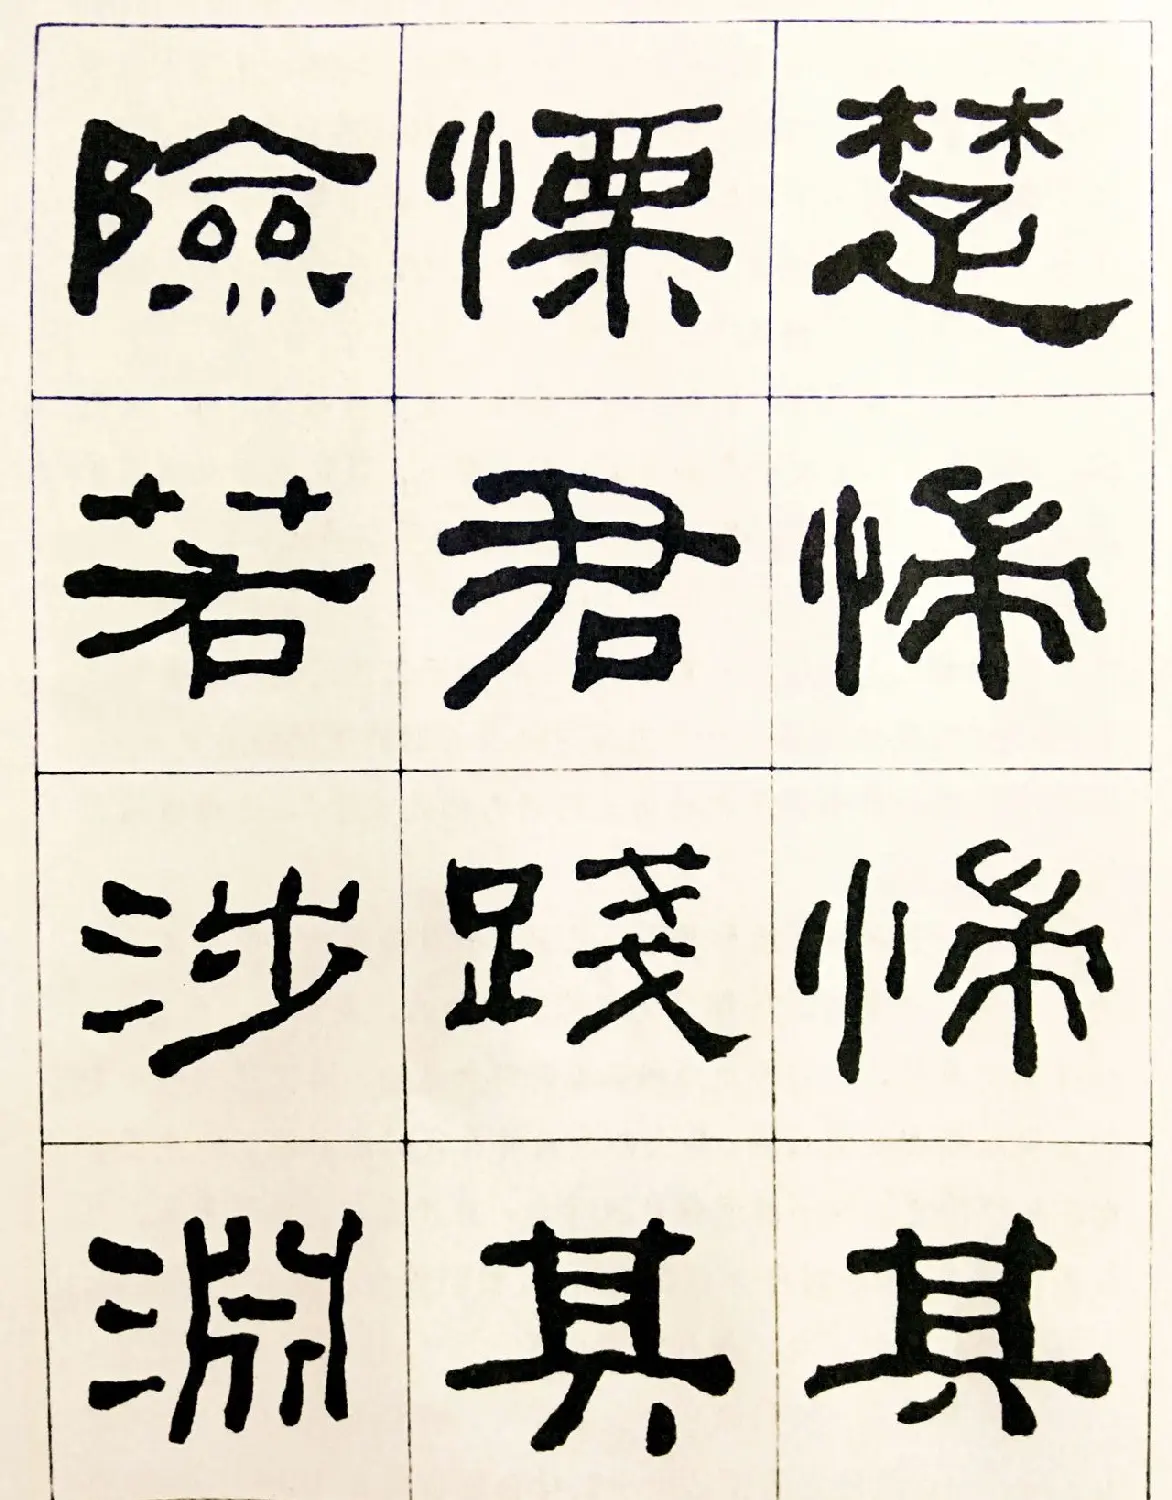 楚惴惴其
慄君踐其
險若涉淵